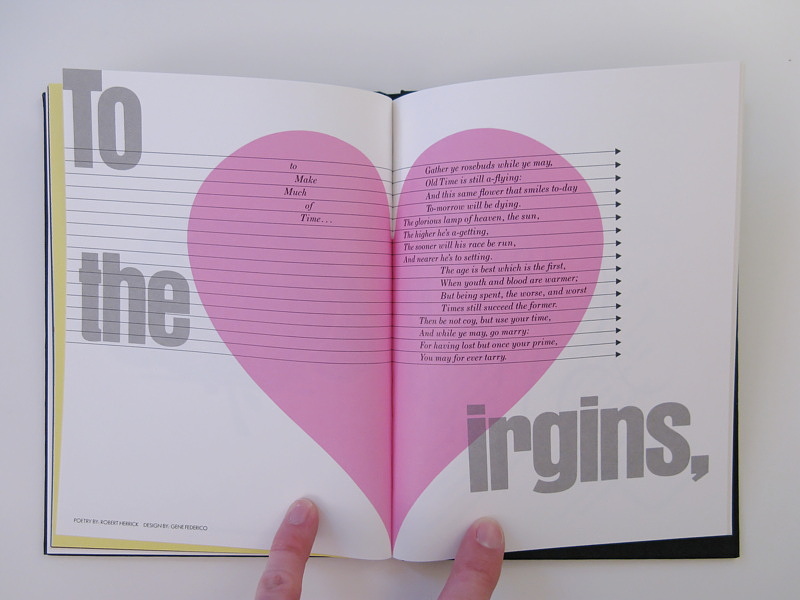 To
the
irgins,
to
Make
Much
of
Time...
Gather ye rosebuds while ye may,
Old Time is still a-flying:
And this same flower that smiles to-day
To-morrow will be dying.
The glorious lamp of heaven, the sun,
The higher he's a-getting,
The sooner will his race be run,
And nearer he's to setting.
The age is best which is the first,
When youth and blood are warmer;
But being spent, the worse, and worst
Times still succeed the former.
Then be not coy, but use your time,
And while ye may, go marry:
For having lost but once your prime,
You may for ever tarry.
POETRY BY: ROBERT HERRICK DESIGN BY: GENE FEDERICO